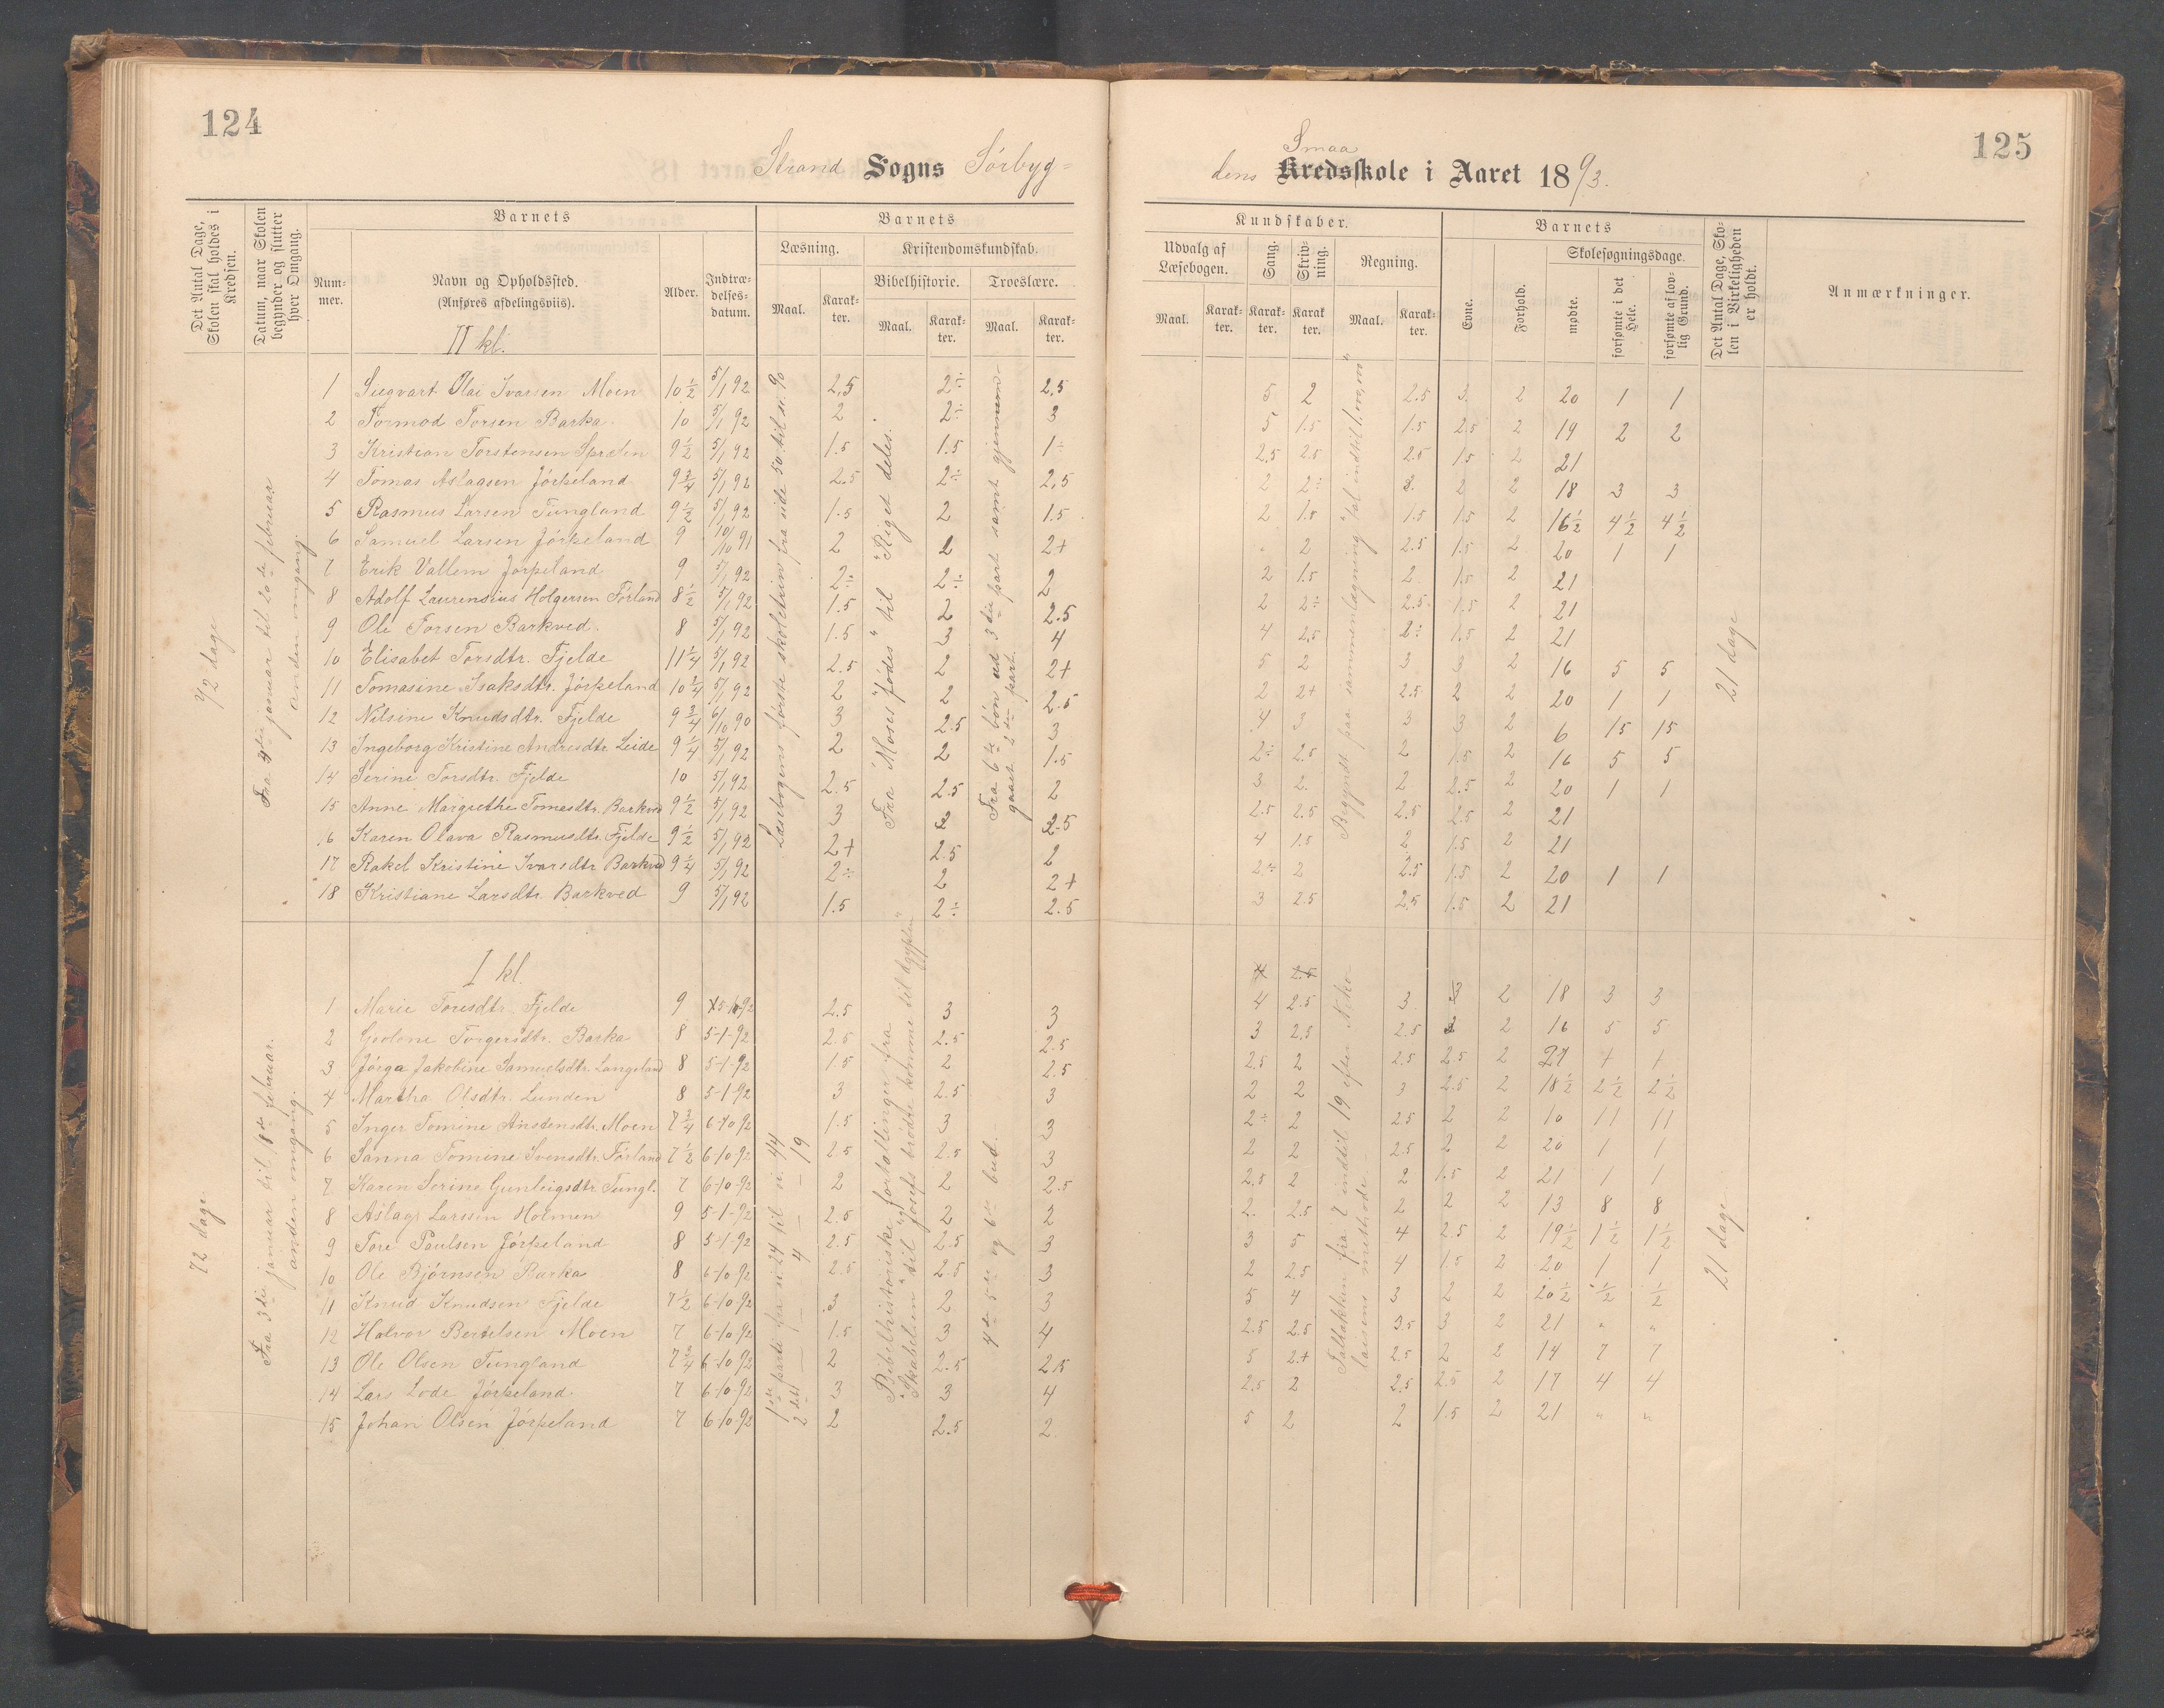 124
Strand Sogns Sörbyg=
Det Antal Dage, Skolen skal holdes i Kredsen.
Datum, naar Skolen begynder og slutter hver Omgang.
Barnets
Num-mer.
Navn og Opholdssted.
(Anføres afdelingsviis).
Alder.
Indtræ-delses-datum.
Barnets
Læsning.
Maal.
Karak-ter.
Kristendomskundskab.
Bibelhistorie.
Maal.
Karak-ter.
Troeslære.
Maal.
Karak-ter.
II kl.
72 dage
Fra 4de januar til 20de februar anden omgang.
Læsebogens første skoletrin fra side 50 til s. 90
Fra "Moses fødes" til "Riget deles".
Fra 6te bön ud 3die part samt gjennemgaaet 2den part.
1 Siegvart Olai Ivarsen Moen 10 1/2 5/1 92 2.5 2÷ 2.5
2 Tormod Torsen Barka 10 5/1 92 2 2÷ 3
3 Kristian Torstensen Sprøen 9 1/2 5/1 92 1.5 1.5 1÷
4 Tomas Aslagsen Jörpeland 9 3/4 5/1 92 2.5 2÷ 2.5
5 Rasmus Larsen Tungland 9 1/2 5/1 92 1.5 2 1.5
6 Samuel Larsen Jörpeland 9 10/10 91 2 2 2+
7 Erik Vallem Jörpeland 9 5/1 92 2÷ 2÷ 2
8 Adolf Laurensius Holgersen Förland 8 1/2 5/1 92 1.5 2 2.5
9 Ole Torsen Barkved 8 5/1 92 1.5 3 4
10 Elisabet Torsdtr. Fjelde 11 1/4 5/1 92 2.5 2 2+
11 Tomasine Isaksdtr. Jörpeland 10 1/4 5/1 92 2 2 2.5
12 Nilsine Knudsdtr. Fjelde 9 3/4 6/10 90 3 2.5 3
13 Ingeborg Kristine Andresdtr Leide 9 1/4 5/1 92 2 2 1.5
14 Serine Torsdtr. Fjelde 10 5/1 92 2.5 2.5 2
15 Anne Margrethe Tomasdtr. Barkved 9 1/2 5/1 92 3 2 2.5
16 Karen Olava Rasmusdtr. Fjelde 9 1/2 5/1 92 2+ 2.5 2
17 Rakel Kristine Ivarsdtr Barkved 9 1/4 5/1 92 2÷ 2 2+
18 Kristiane Larsdtr. Barkved 9 5/1 92 1.5 2÷ 2.5
I kl.
72 dage
Fra 3die januar til 18de februar. anden omgang.
1ste parti fra s. 24 til s. 44
2det — 4 — 19
Bibelhistoriske fortællinger fra "Skabelsen" til "Josefs brödre komme til Ægypten"
4de 5te og 6te bud.
1 Marie Toresdtr. Fjelde 9 2.5 3 3
2 Gjolene Torgersdtr. Barka 8 5-1-92 2.5 2.5 2.5
3 Jörga Jakobine Samuelsdtr. Langeland 8 5-1-92 1.5 2 2.5
4 Martha Olsdtr. Lunden 8 5-1-92 3 2.5 3
5 Inger Tomine Anstensdtr. Moen 7 3/4 6-10 92 1.5 3 3
6 Sanna Tomine Svensdtr. Förland 7 1/2 6-10-92 2.5 2.5 3
7 Karen Serine Gunleigsdtr Tungl. 7 6-10-92 2 2 2.5
8 Aslag Larssen Holmen 9 5-1-92 2.5 2 2
9 Tore Paulsen Jörpeland 8 5-1-92 2.5 2.5 3
10 Ole Björnsen Barka 8 6-10 92 2.5 2.5 3
11 Knud Knudsen Fjelde 7 1/2 6-10-92 3 2 3
12 Halvor Bertelsen Moen 7 6-10-92 1.5 3 4
13 Ole Olsen Tungland 7 3/4 6-10 92 2 2.5 2.5
14 Lars Lode Jörpeland 7 6-10-92 3 3 4
15 Johan Olsen Jörpeland 7 6-10-92 2 2.5 2.
125
Smaa
dens Kredsskole i Aaret 1893.
Kundskaber.
Udvalg af Læsebogen.
Maal.
Karak-ter.
Sang.
Karak-ter.
Skriv-ning.
Karak ter.
Regning.
Maal.
Karak-ter.
Barnets
Evne.
Forhold.
Skolesøgningsdage.
mødte.
forsømte i det Hele.
forsømte af lov-lig Grund.
Det Antal Dage, Sko-len i Virkeligheden er holdt.
Anmærkninger.
Begyndt paa sammenlægning "tal indtil 1,000,000"
21 dage
5 2 2.5 3. 2 20 1 1
5 1.5 1.5 2.5 2 19 2 2
2.5 2.5 2.5 1.5 2 21
2 2÷ 3. 2 2 18 3 3
2 1.5 1.5 1.5 2 16 1/2 4 1/2 4 1/2
2 2.5 1.5 2 20 1 1
2 1.5 2 1.5 2 21
2 2÷ 2.5 1.5 2 21
4 2.5 2÷ 1.5 2 21
5 2 3 3 2 16 5 5
2 2+ 2.5 2 2 20 1 1
4 3 3 3 2 6 15 15
2÷ 2.5 2 1.5 2 16 5 5
3 2. 2 2.5 2 20 1 1
2.5 2.5 2.5 2.5 2 21
4 1.5 2 1.5 2 21
2÷ 2 2.5 1.5 2 20 1 1
3 2.5 2.5 1.5 2 21
Taltakten fra 2 indtil 19 efter Niko-laisens methode.
21 dage
4 2.5 3 3 2 18 3 3
3 2.5 2.5 2 2 16 5 5
2.5 2 2.5 2.5 2 21
2 2 3 2.5 2 18 1/2 2 1/2 2 1/2
2÷ 2 2.5 2 2 10 11 11
2 2 2.5 2 2 20 1 1
2.5 2 2 1.5 2 21 1 1
2. 2.5 2 2 2 13 8 8
3 5 4 2.5 2 19 1/2 1 1/2 1 1/2
2 2.5 4 1.5 2 20 1 1
5 4 3 2 2 20 1/2 1/2 1/2
2.5 2.5 3.5 3 2 21 " "
5 2+ 2.5 2 2 14 7 7
2.5 2 2.5 2.5 2 17 4 4
5 2 2 1.5 2 21 " "